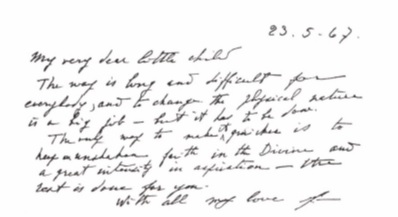 23-5-67.
My very dear little child
The way is long and difficult for
everybody, and to change the physical nature
is a big job — but it has to be done.
The only way to make it quicker is to
keep an unshaken faith in the Divine and
a great intensity in aspiration — the
rest is done for you.
With all my love